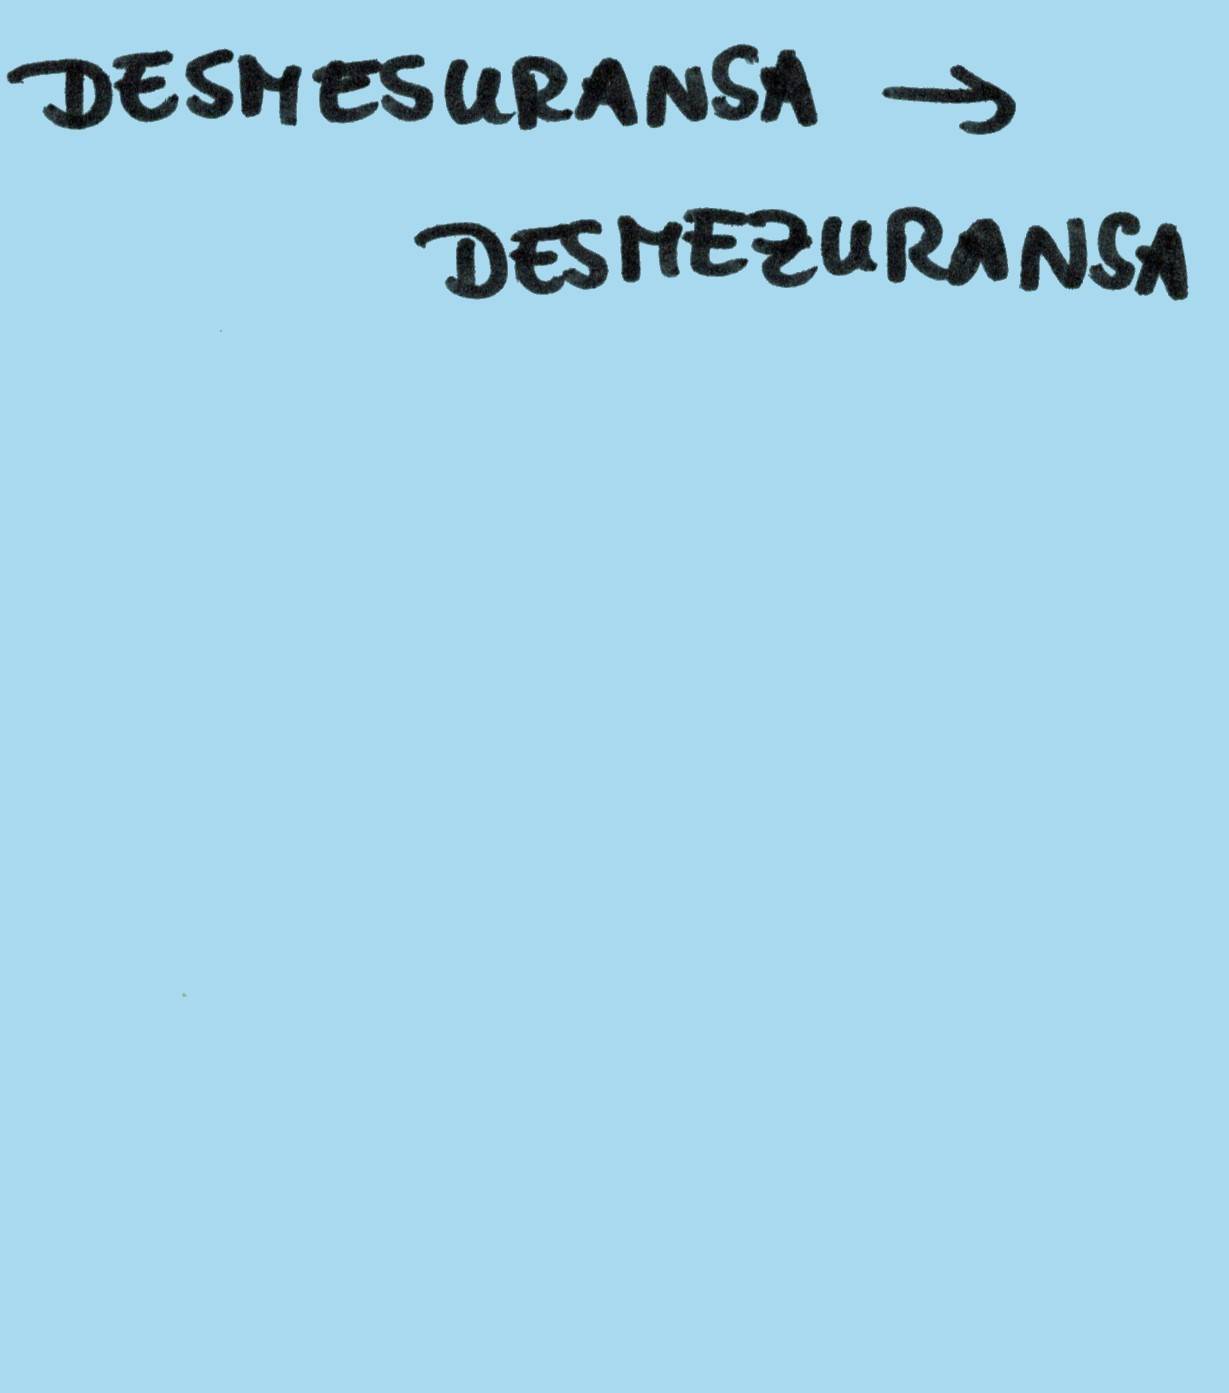 DESMESURANSA →
DESMEZURANSA